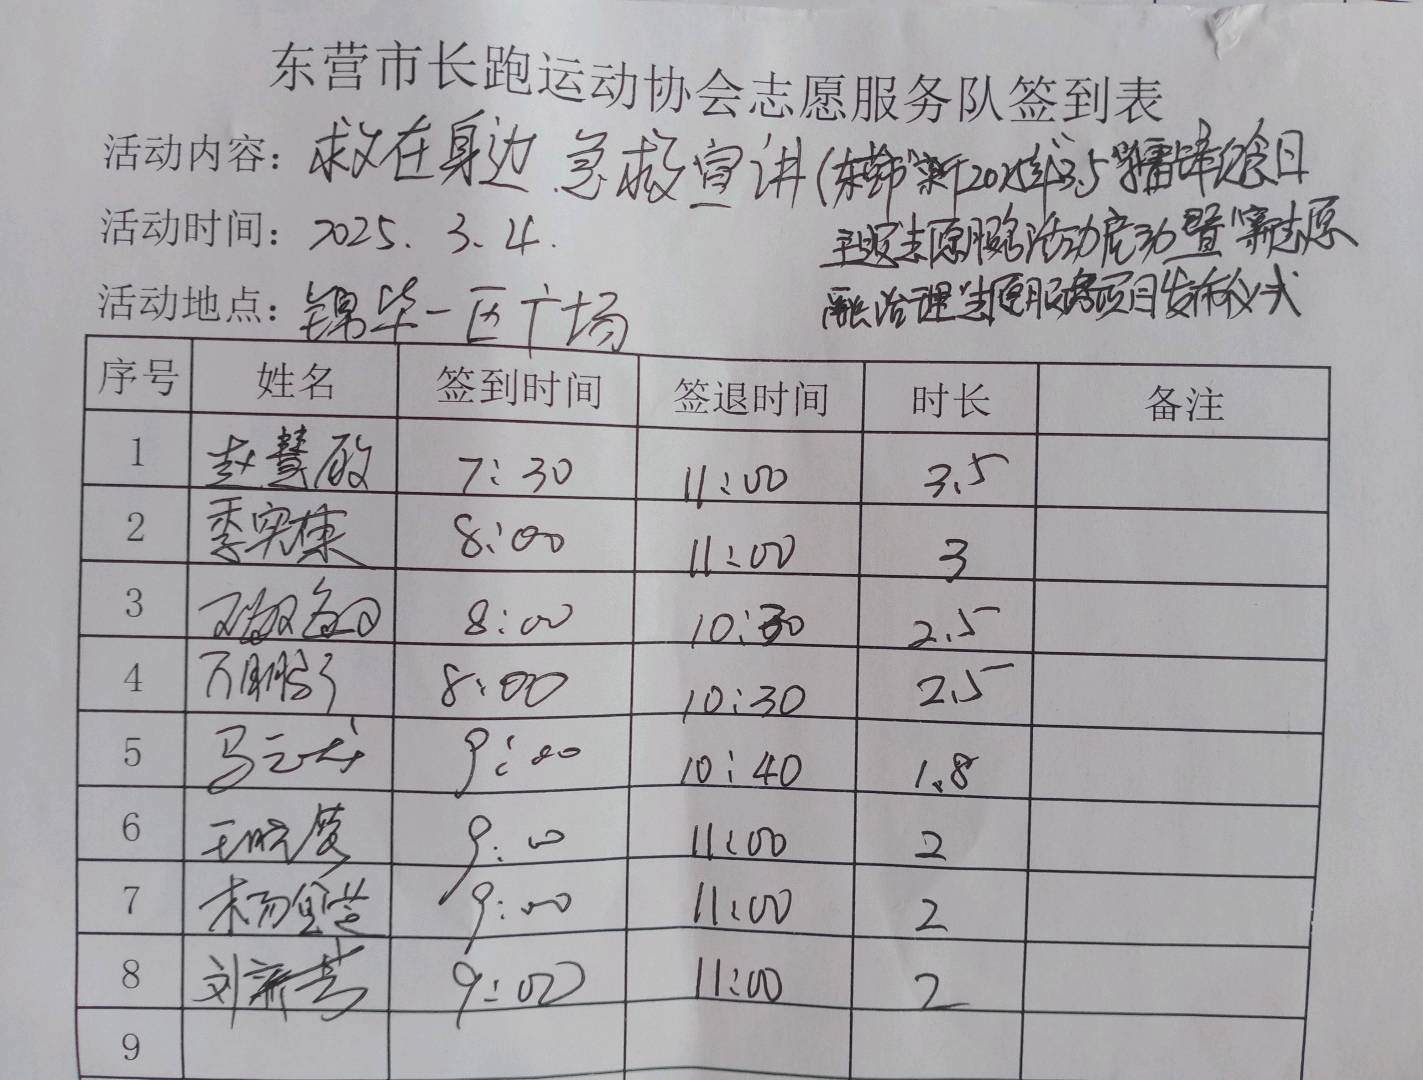 东营市长跑运动协会志愿服务队签到表
活动内容：救在身边 急救宣讲(东营市"新2025年3.5"学雷锋纪念日
主题志愿服务活动启动暨"新志愿
融治理"志愿服务项目发布仪式
活动时间：2025.3.4.
活动地点：锦华一区广场
序号 姓名 签到时间 签退时间 时长 备注
1 赵慧敏 7:30 11:00 3.5
2 季宪栋 8:00 11:00 3
3 8:00 10:30 2.5
4 万鹏 8:00 10:30 2.5
5 马云 9:00 10:40 1.8
6 王晓 9:00 11:00 2
7 杨 9:00 11:00 2
8 刘新芳 9:00 11:00 2
9